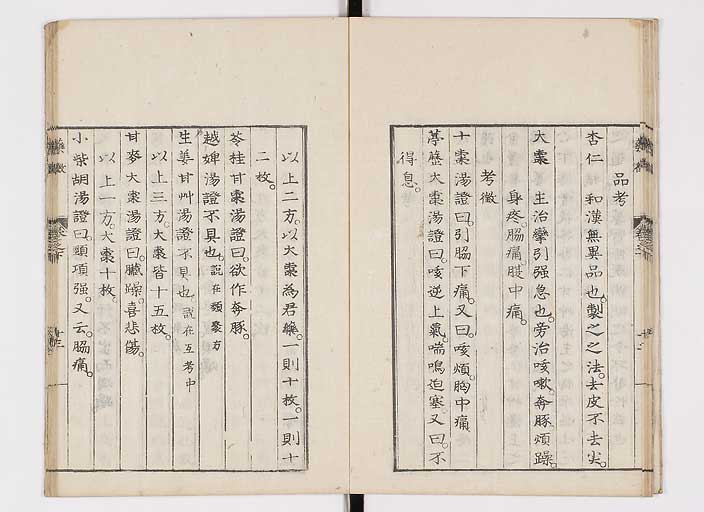 品考
杏仁　和漢無異品也。製之之法。去皮不去尖。
大棗　主治攣引强急也。旁治咳嗽。奔豚煩躁。
身疼。脇痛。腹中痛。
考徵
十棗湯證曰。引脇下痛。又曰。咳煩。胸中痛。
葶藶大棗湯證曰。咳逆上氣。喘鳴迫塞。又曰。不
得息。
以上二方。以大棗為君藥。一則十枚。一則十
二枚。
苓桂甘棗湯證曰。欲作奔豚。
越婢湯證不具也。說在類聚方
生姜甘艸湯證不具也。說在互考中
以上三方。大棗皆十五枚。
甘麥大棗湯證曰。臓躁。喜悲傷。
以上一方。大棗十枚。
小柴胡湯證曰。頸項强。又云。脇痛。